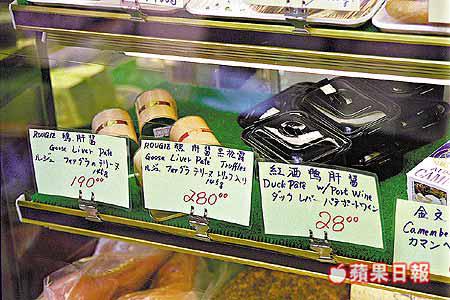 ROUGIE 鵝肝醬
Goose Liver Pate
ルジェ フォグラのテリーヌ
190.00
ROUGIE 鵝肝醬 黒松露
Goose Liver Pate Truffles
ルジェ フォグラ テリーヌ トリュフ入り
145g
280.00
紅酒鴨肝醬
Duck Pate w/Port Wine
ダック レバー パテポートワイン
28.00
金文
Camembe
カマンベ
蘋果日報